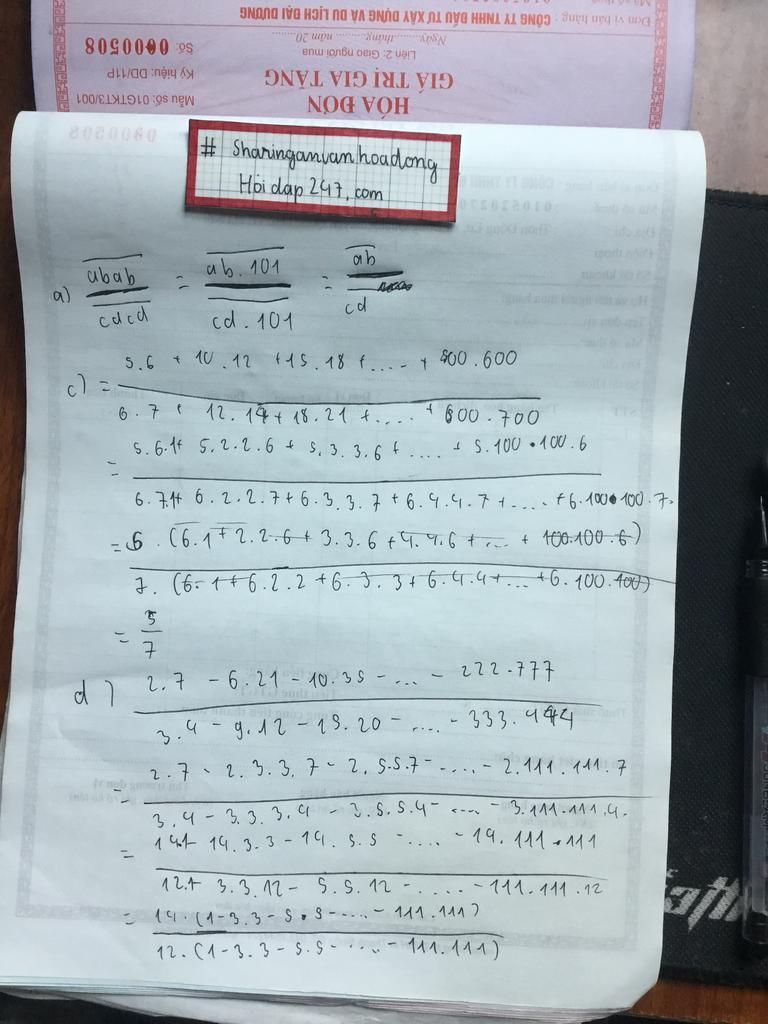 CÔNG TY TNHH ĐẦU TƯ XÂY DỰNG VÀ DU LỊCH ĐẠI DƯƠNG
Đơn vị bán hàng:
Ngày......tháng......năm 20......
Liên 2: Giao người mua
GIÁ TRỊ GIA TĂNG
HÓA ĐƠN
Số: 0000508
Ký hiệu: DD/11P
Mẫu số: 01GTKT3/001
# Sharinganvanhoadong
Hoidap247.com
a) abab / cdcd = ab.101 / cd.101 = ab / cd
c) = 5.6 + 10.12 + 15.18 + .... + 500.600
6.7 + 12.14 + 18.21 + .... + 600.700
= 5.6.1+ 5.2.2.6 + 5.3.3.6 + .... + 5.100.100.6
6.7.1+ 6.2.2.7 + 6.3.3.7 + 6.4.4.7 + .... + 6.100.100.7.
= 5.(6.1 + 2.2.6 + 3.3.6 + 4.4.6 + ... + 100.100.6)
7.(6.1 + 6.2.2 + 6.3.3 + 6.4.4 + ... + 6.100.100)
= 5 / 7
d) 2.7 - 6.21 - 10.35 - ... - 222.777
3.4 - 9.12 - 15.20 - .... - 333.444
= 2.7 - 2.3.3.7 - 2.5.5.7 - .... - 2.111.111.7
3.4 - 3.3.3.4 - 3.5.5.4 - .... - 3.111.111.4.
= 14.1 - 14.3.3 - 14.5.5 - .... - 14.111.111
12.1 - 3.3.12 - 5.5.12 - ..... - 111.111.12
= 14.(1-3.3-5.5-....-111.111)
12.(1-3.3-5.5-....-111.111)